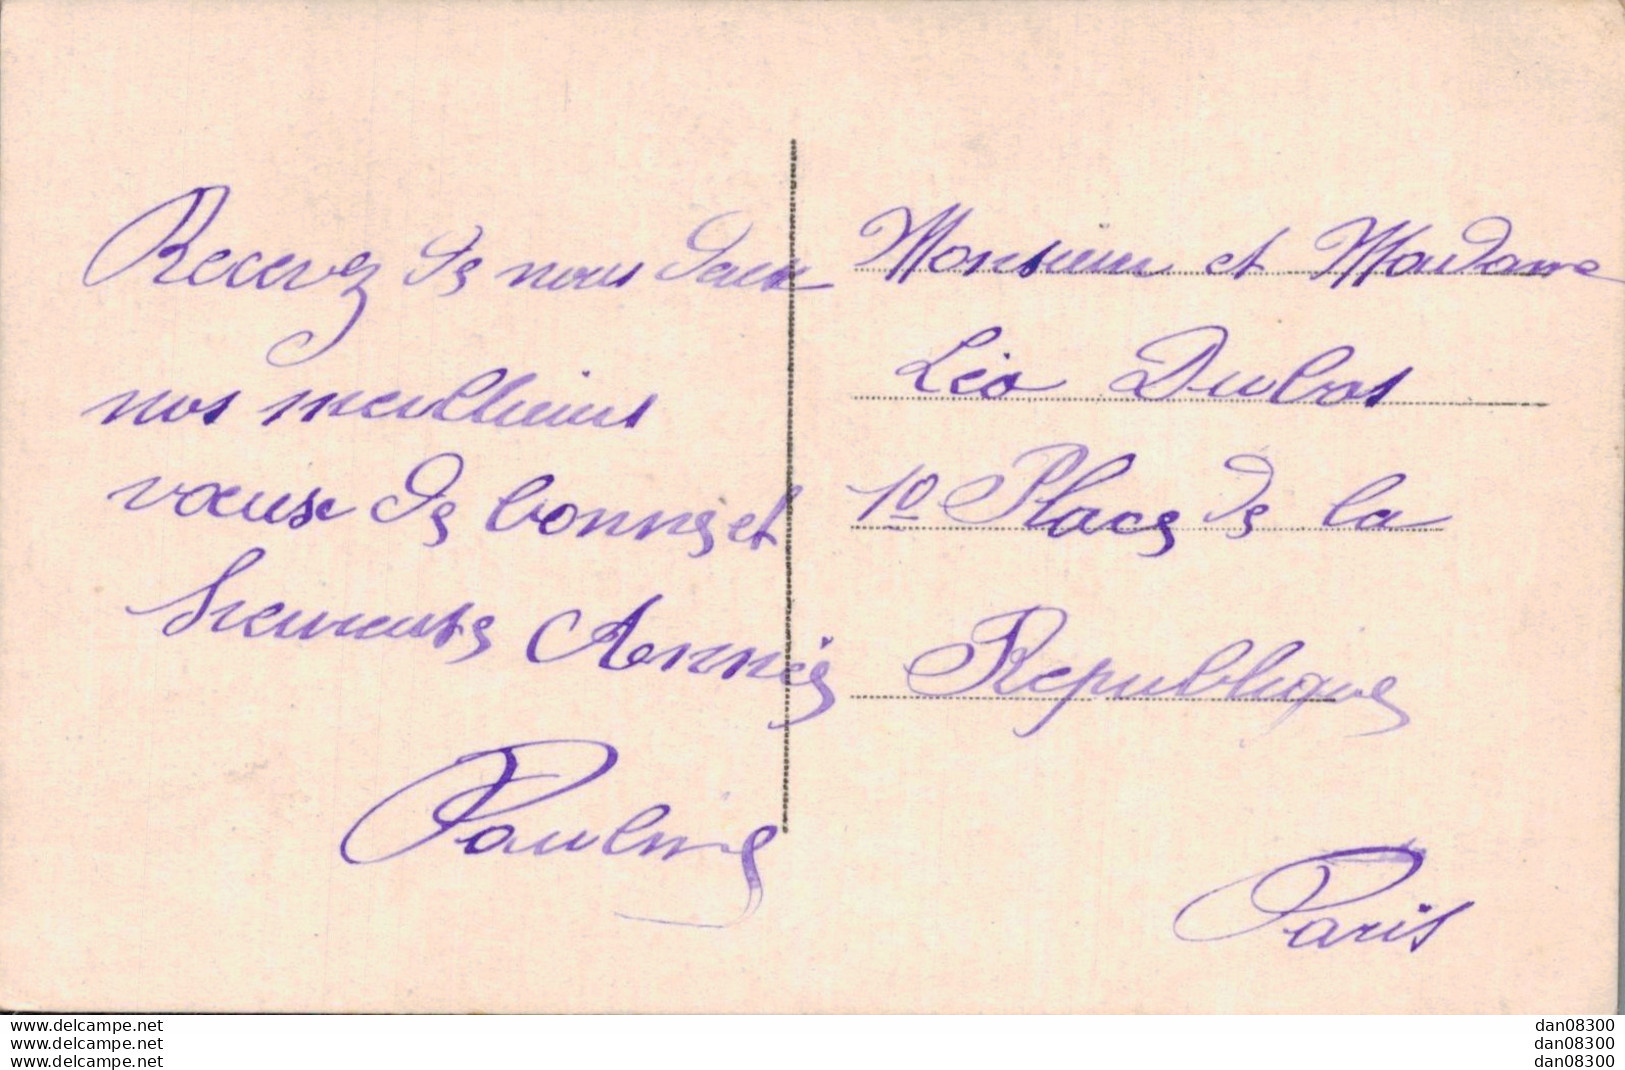 Recevez de nous deux
nos meilleurs
voeux de bonne et
heureuse Année
Pauline
Monsieur et Madame
Léo Dubos
10 Place de la
Republique
Paris
www.delcampe.net
www.delcampe.net
www.delcampe.net
dan08300
dan08300
dan08300